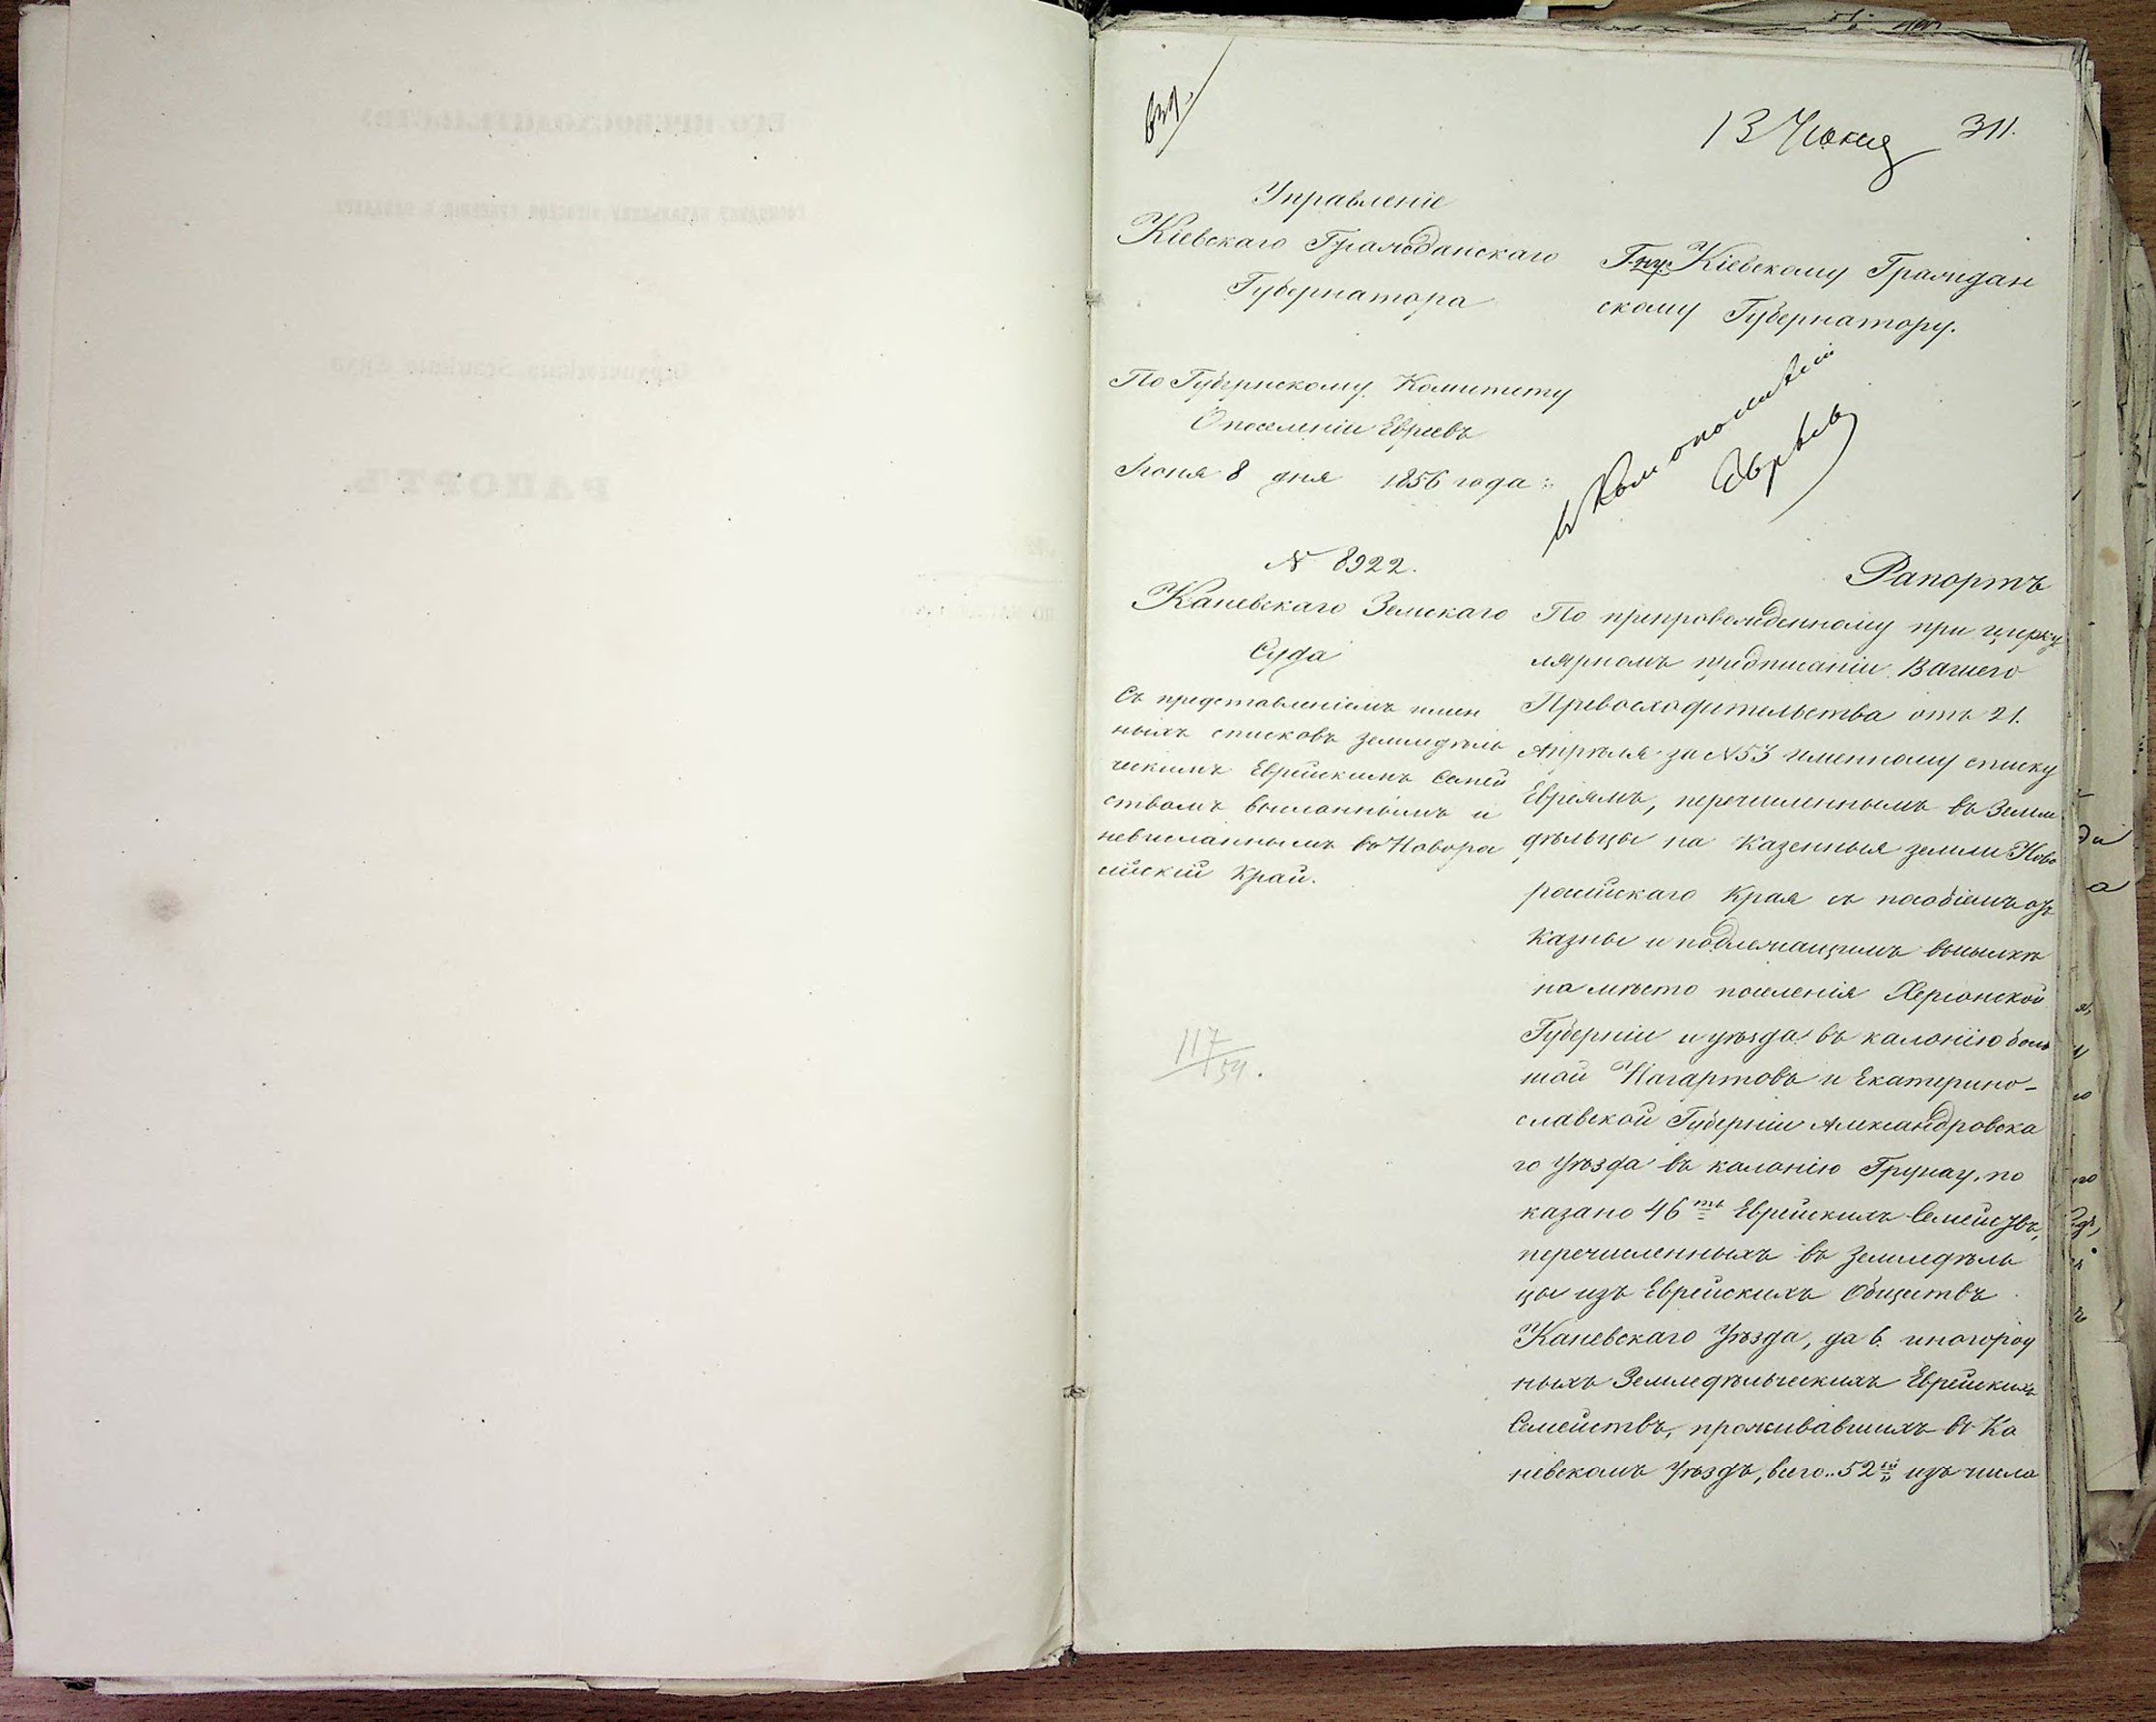 13 Июня 311.
Управленіе
Кіевскаго Гражданскаго
Губернатора
По Губернскому Комитету
О поселеніи Евреевъ
Іюня 8 дня 1856 года
N 8922.
Каневскаго Земскаго
Суда
Съ представленіемъ имен
ныхъ списковъ земледѣль
ческимъ Еврейскимъ Семей
ствамъ высланнымъ и
невысланнымъ въ Новоро
сійскій Край.
117/54.
Г-ну Кіевскому Граждан
скому Губернатору.
въ Ком о поселеніи
Евреевъ
Рапортъ
По препровожденному при цирку
лярномъ предписаніи Вашего
Превосходительства отъ 21.
Апрѣля за N53 именному списку
Евреямъ, перечисленнымъ въ Земле
дѣльцы на казенныя земли Ново
російскаго Края съ пособіемъ отъ
казны и подлежащимъ высылкѣ
на мѣсто поселенія Херсонской
Губерніи и уѣзда въ калонію боль
шой Нагартовъ и Екатерино-
славской Губерніи Александровска
го Уѣзда въ калонію Грунау, по
казано 46ть Еврейскихъ Семействъ,
перечисленныхъ въ Земледѣль
цы изъ Еврейскихъ Обществъ
Каневскаго Уѣзда, да 6. иногород
ныхъ Земледѣльческихъ Еврейскихъ
Семействъ, проживавшихъ въ Ка
невскомъ Уѣздѣ, всего 52 изъ числа
РАПОРТЪ